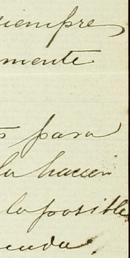 siempre
mente
para
la hacien
lo posible
enda.